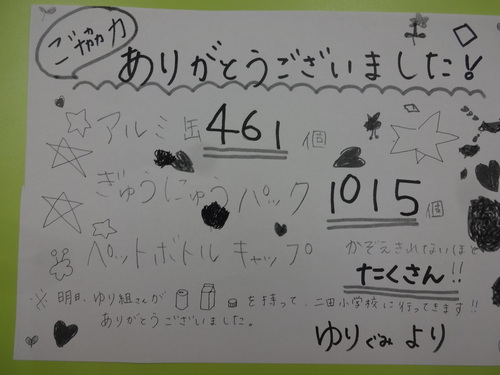 ご協力
ありがとうございました!
アルミ缶 461 個
ぎゅうにゅうパック 1015 個
ペットボトルキャップ かぞえきれないほど
たくさん!!
※ 明日、ゆり組さんが を持って、二田小学校に行ってきます!!
ありがとうございました。
ゆりぐみ より